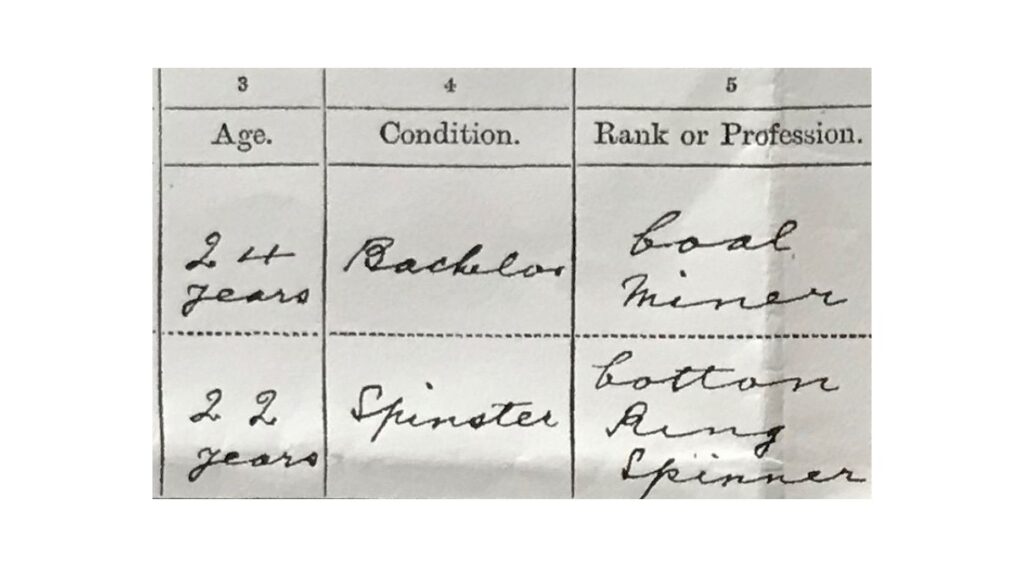 3 4 5
Age. Condition. Rank or Profession.
24 years Bachelor Coal Miner
22 years Spinster Cotton Ring Spinner